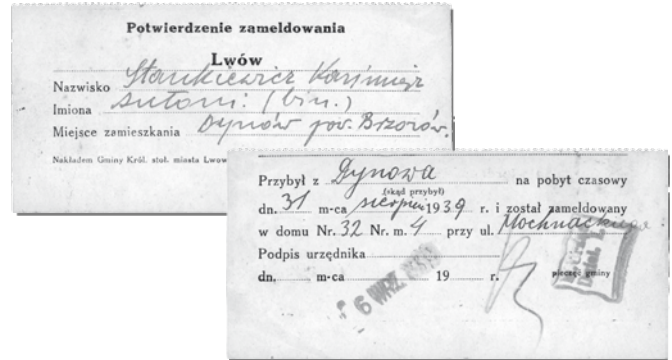 Potwierdzenie zameldowania
Lwów
Nazwisko Stankiewicz Kazimierz
Imiona Antoni (bin.)
Miejsce zamieszkania Dynów pow. Brzozów.
Nakładem Gminy Król. stoł. miasta Lwow
Przybył z Dynowa na pobyt czasowy
(skąd przybył)
dn. 31 m-ca sierpnia 1939 r. i został zameldowany
w domu Nr. 32 Nr. m. 4 przy ul. Mochnackiego
Podpis urzędnika
dn. m-ca 19 r. pieczęć gminy
6 WRZ 1939